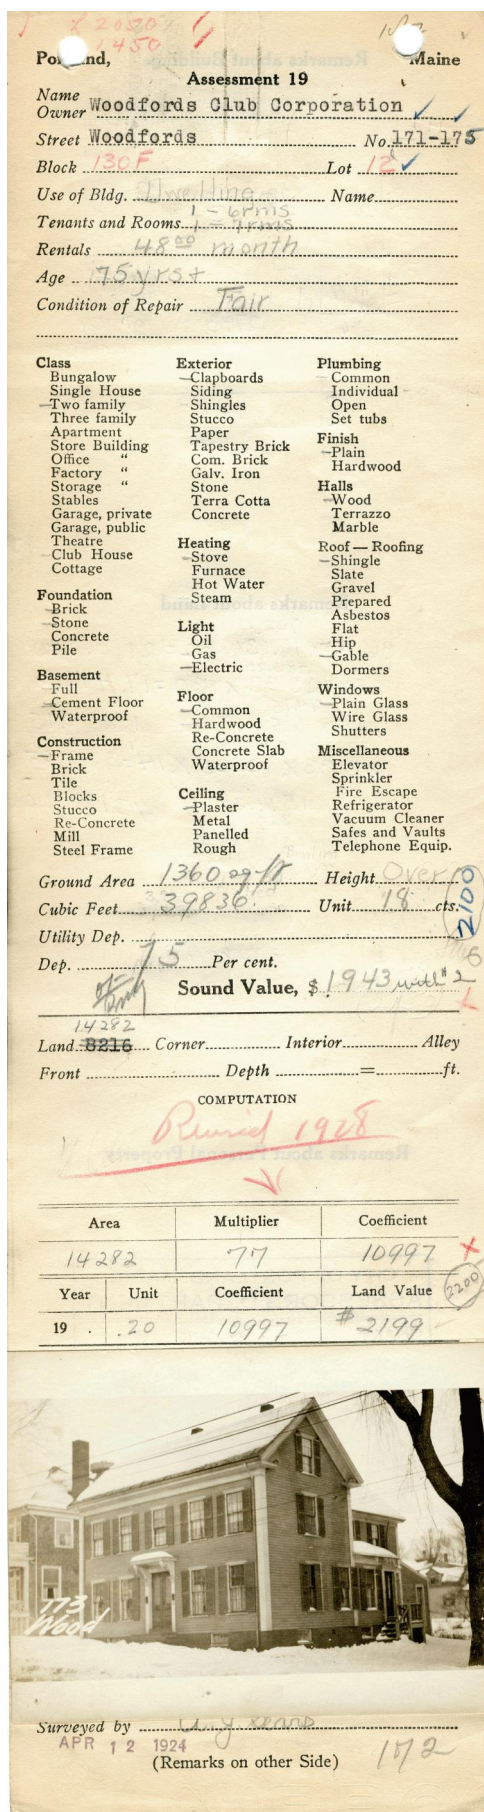 £ 2050
1450
Portland, Maine
Assessment 19
Name
Owner Woodfords Club Corporation
Street Woodfords No. 171-175
Block 130F Lot 12
Use of Bldg. Dwelling Name
1 - 6 rms
Tenants and Rooms 1 - 7 rms
Rentals 48 00 month
Age 75 yrs +
Condition of Repair Fair
Class
Bungalow
Single House
Two family
Three family
Apartment
Store Building
Office "
Factory "
Storage "
Stables
Garage, private
Garage, public
Theatre
Club House
Cottage
Foundation
Brick
Stone
Concrete
Pile
Basement
Full
Cement Floor
Waterproof
Construction
Frame
Brick
Tile
Blocks
Stucco
Re-Concrete
Mill
Steel Frame
Exterior
Clapboards
Siding
Shingles
Stucco
Paper
Tapestry Brick
Com. Brick
Galv. Iron
Stone
Terra Cotta
Concrete
Heating
Stove
Furnace
Hot Water
Steam
Light
Oil
Gas
Electric
Floor
Common
Hardwood
Re-Concrete
Concrete Slab
Waterproof
Ceiling
Plaster
Metal
Panelled
Rough
Plumbing
Common
Individual
Open
Set tubs
Finish
Plain
Hardwood
Halls
Wood
Terrazzo
Marble
Roof — Roofing
Shingle
Slate
Gravel
Prepared
Asbestos
Flat
Hip
Gable
Dormers
Windows
Plain Glass
Wire Glass
Shutters
Miscellaneous
Elevator
Sprinkler
Fire Escape
Refrigerator
Vacuum Cleaner
Safes and Vaults
Telephone Equip.
Ground Area 1360 sq ft Height Over
Cubic Feet 39836 Unit 18 cts.
2100
Utility Dep.
Dep. 75 Per cent.
Sound Value, $ 1943 with #2
14282
Land 8216 Corner Interior Alley
Front Depth = ft.
COMPUTATION
Revised 1928
Area Multiplier Coefficient
14282 77 10997
Year Unit Coefficient Land Value
2200
19 . .20 10997 # 2199
173
Wood
Surveyed by
APR 12 1924
(Remarks on other Side)
172